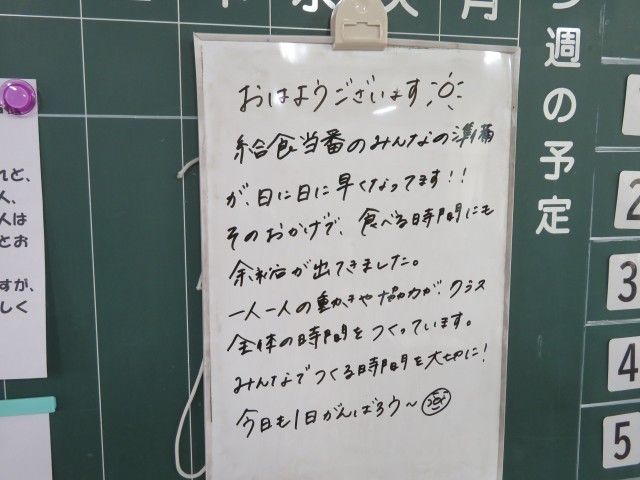 おはようございます
給食当番のみんなの準備
が、日に日に早くなってます!!
そのおかげで、食べる時間にも
余裕が出てきました。
一人一人の動きや協力が、クラス
全体の時間をつくっています。
みんなでつくる時間を大切に!
今日も1日がんばろう~
週の予定
月
2
3
4
5
れど、
人、
人は
とお
すが、
しく